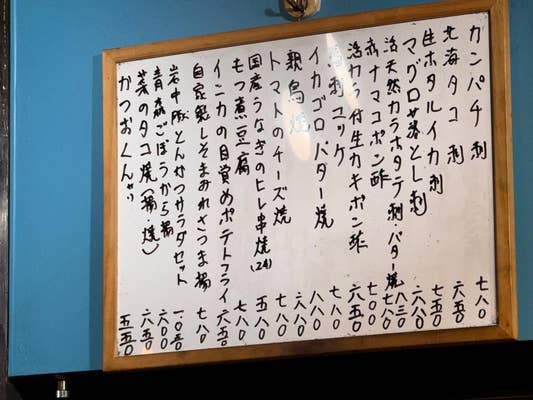 カンパチ刺 七八〇
北海タコ刺 六五〇
生ホタルイカ刺 七五〇
マグロ中落とし刺 六八〇
活天然カラホタテ刺・バター焼 八三〇
赤ナマコポン酢 七八〇
活カラ付生カキポン酢 七〇〇
馬刺ユッケ 六五〇
イカゴロバター焼 七八〇
親鳥焼 八八〇
トマトのチーズ焼 六八〇
国産うなぎのヒレ串焼(2本) 七八〇
もつ煮豆腐 五八〇
インカの目覚めポテトフライ 七八〇
自家製しそまみれさつま揚 六五〇
岩中豚とんかつサラダセット 七八〇
青森ごぼうから揚 一〇五〇
昔のタコ焼(揚焼) 六〇〇
かつおくんせい 六五〇
五五〇